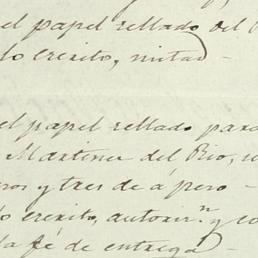 el papel sellado del
lo escrito, mitad
el papel sellado para
Martinez del Rio,
ros y tres de á peso
lo escrito, autorizn y co
la fé de entrega